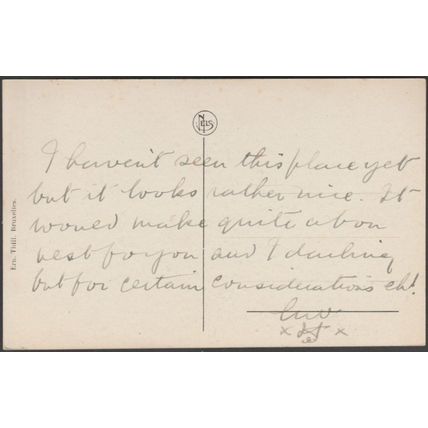 NELS
Ern. Thill, Bruxelles.
I haven't seen this place yet
but it looks rather nice. It
would make quite a bon
nest for you and I darling
but for certain considerations eh!
x x